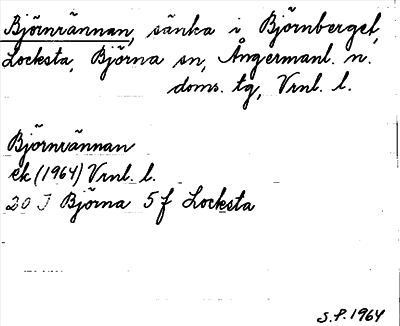 Björnrännan, sänka i Björnberget,
Locksta, Björna sn, Ångermanl. n.
doms. tg, Vrnl. l.
Björnrännan
ek (1964) Vrnl. l.
20 J Björna 5 f Locksta
S.P. 1964